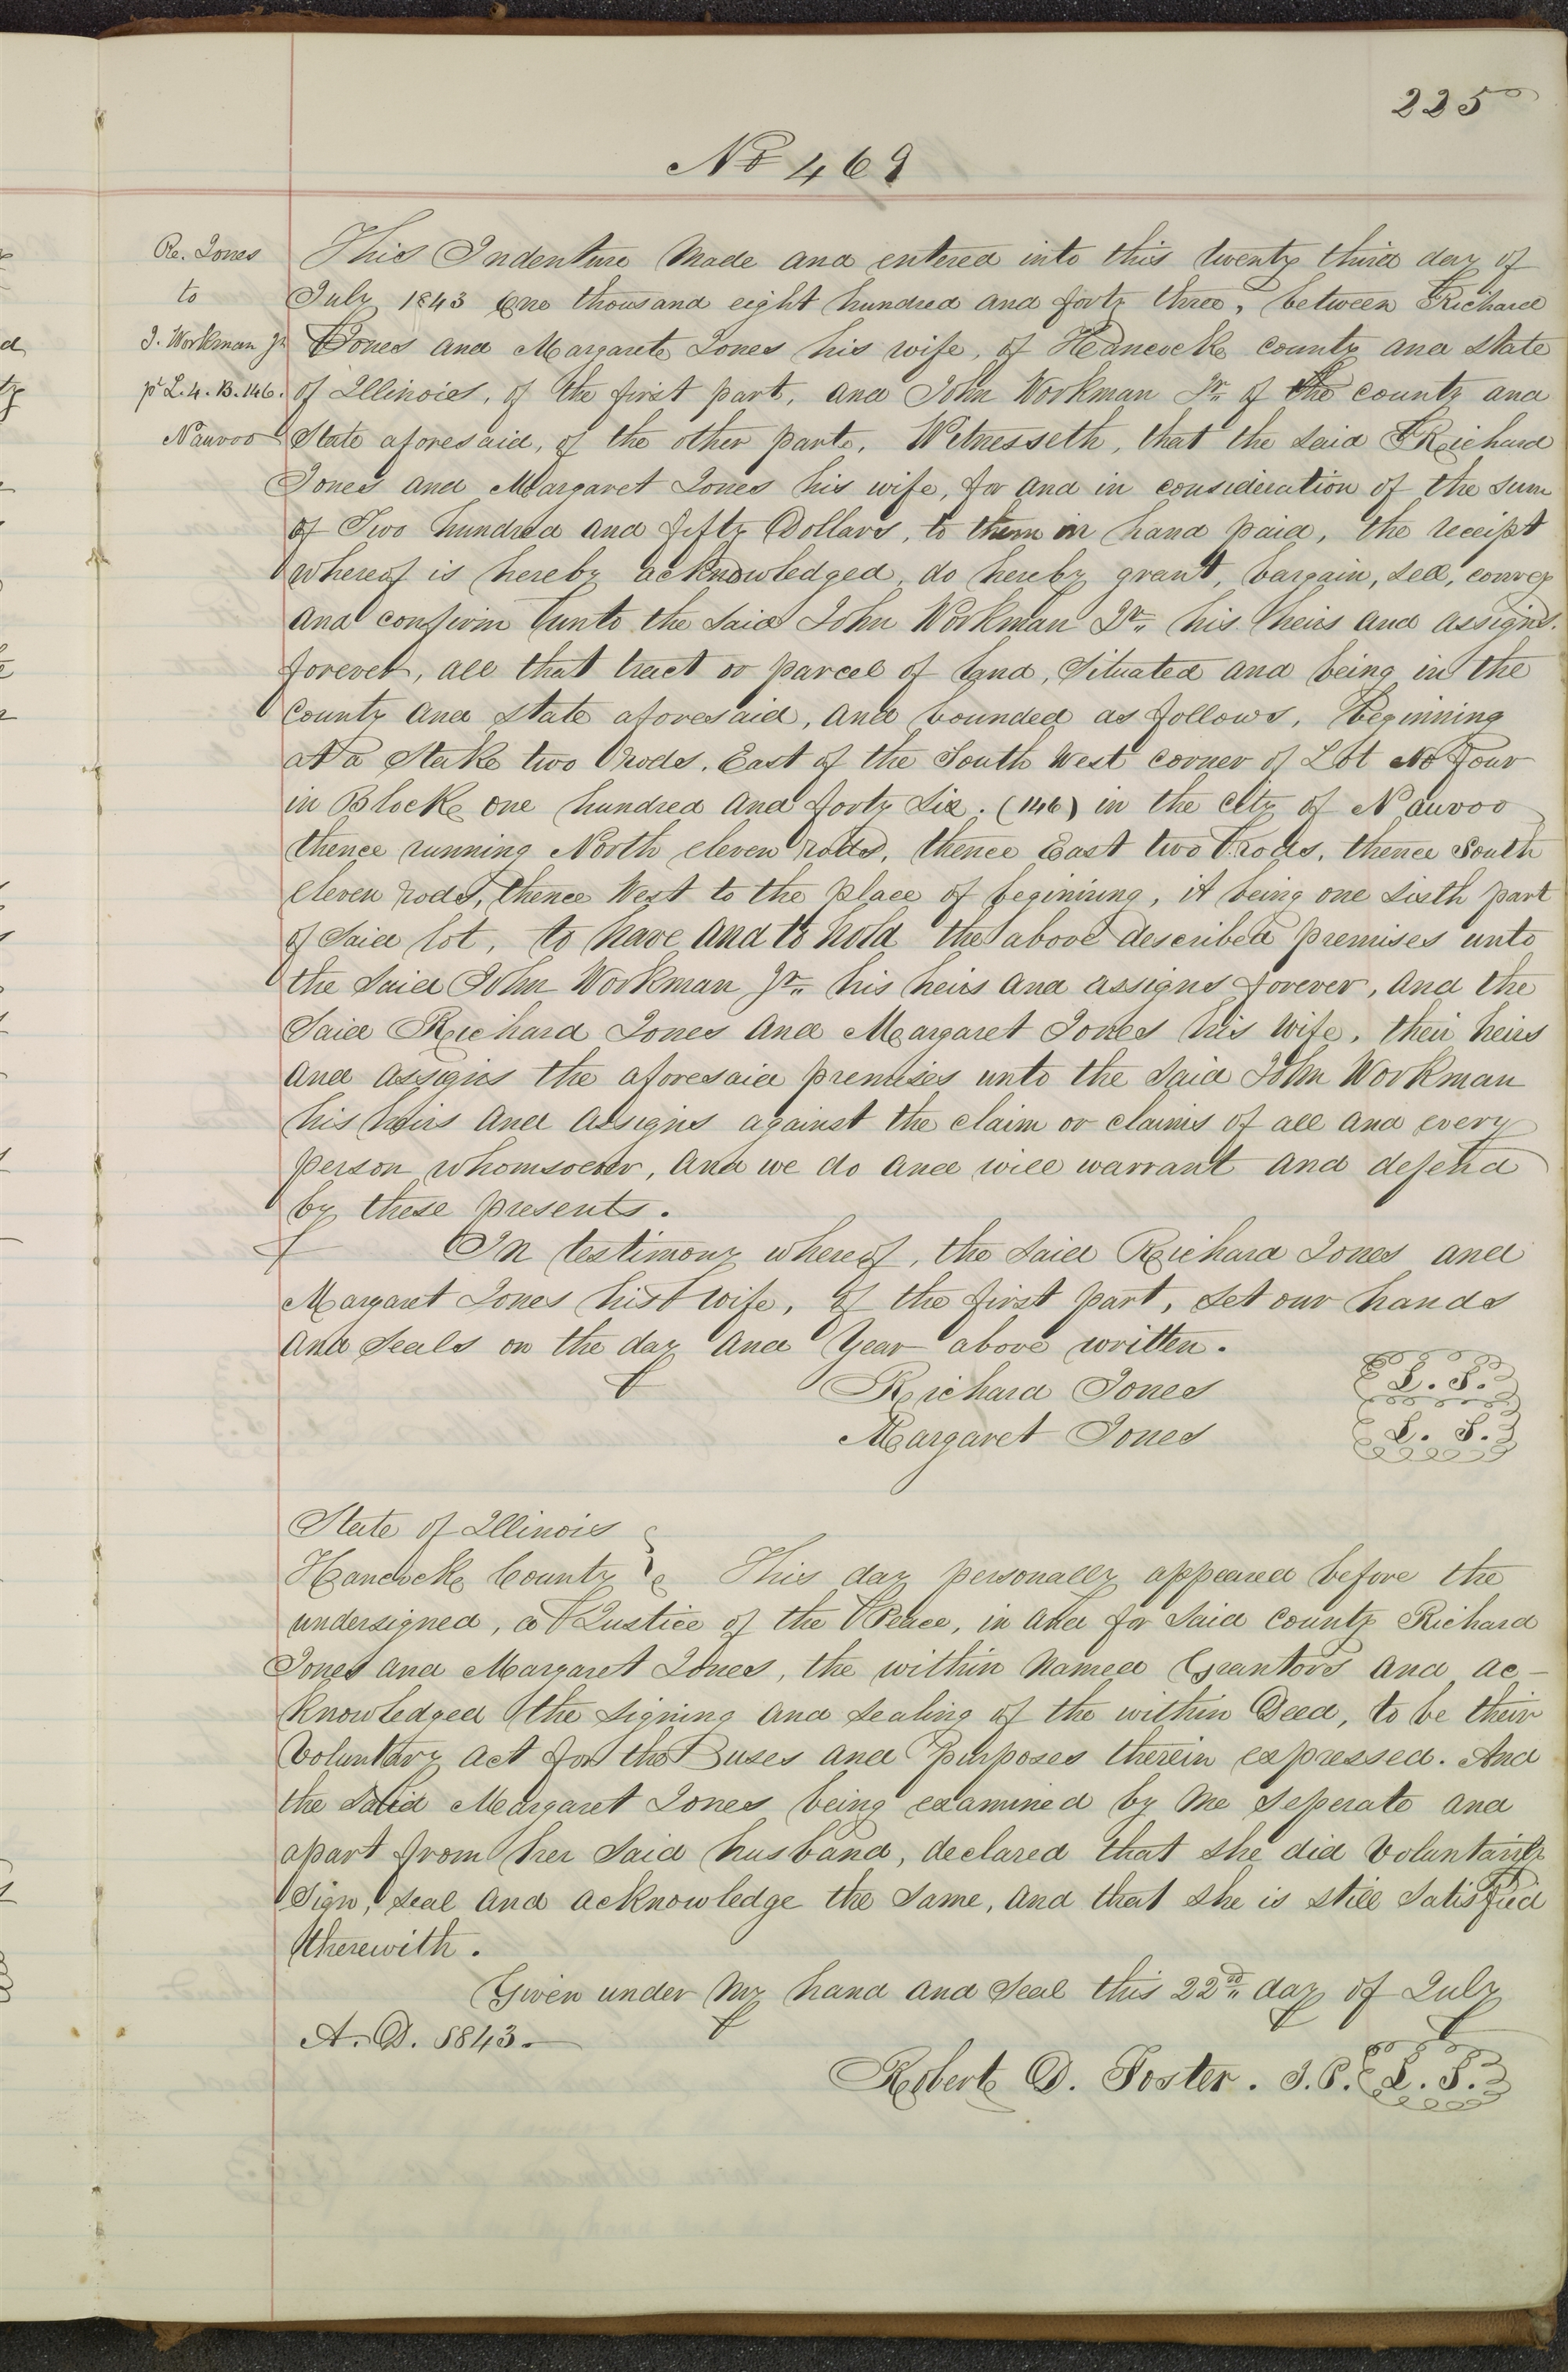 225
No 469
Re. Jones
to
J. Workman Jr
pt L. 4. B. 146.
Nauvoo
This Indenture Made and entered into this twenty third day of
July 1843 One thousand eight hundred and forty three, between Richard
Jones and Margarete Jones his wife, of Hancock county and state
of Illinois, of the first part, and John Workman Jr of the county and
State aforesaid, of the other part, Witnesseth, that the said Richard
Jones and Margaret Jones his wife, for and in consideration of the sum
of Two hundred and fifty Dollars, to them in hand paid, the receipt
whereof is hereby acknowledged, do hereby grant, bargain, sell, convey
and confirm unto the said John Workman Jr. his heirs and assigns.
forever, all that tract or parcel of land, Situated and being in the
County and state aforesaid, and bounded as follows, Beginning
at a Stake two rods, East of the South West corner of Lot No Four
in Block one hundred and forty Six. (146) in the city of Nauvoo
thence running North eleven rods, thence East two rods, thence South
eleven rods, thence West to the place of beginning, it being one sixth part
of said lot, to have and to hold the above described premises unto
the said John Workman Jr. his heirs and assigns forever, and the
Said Richard Jones and Margaret Jones his wife, their heirs
and assigns the aforesaid premises unto the said John Workman
his heirs and assigns against the claim or claims of all and every
person whomsoever, and we do and will warrant and defend
by these presents.
In testimony whereof, the said Richard Jones and
Margaret Jones his wife, of the first part, set our hands
and seals on the day and Year above written.
Richard Jones L. S.
Margaret Jones L. S.
State of Illinois
Hancock County This day personally appeared before the
undersigned, a Justice of the Peace, in and for said county Richard
Jones and Margaret Jones, the within Named Grantors and ac-
knowledged the signing and sealing of the within Deed, to be their
Voluntary act for the uses and Purposes therein expressed. And
the said Margaret Jones being examined by me seperate and
apart from her said husband, declared that she did Voluntarily
Sign, seal and acknowledge the same, and that she is still satisfied
therewith.
Given under my hand and seal this 22nd day of July
A. D. 1843.
Robert D. Foster. J. P. L. S.